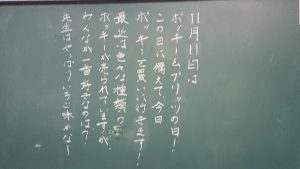 11月11日は
ポッキー&プリッツの日！
この日に備えて、今日
ポッキーを買いに行きます！
最近は色々な種類の
ポッキーが売られていますが、
みんなが一番好きなのは？
先生はやっぱりいちご味かな〜